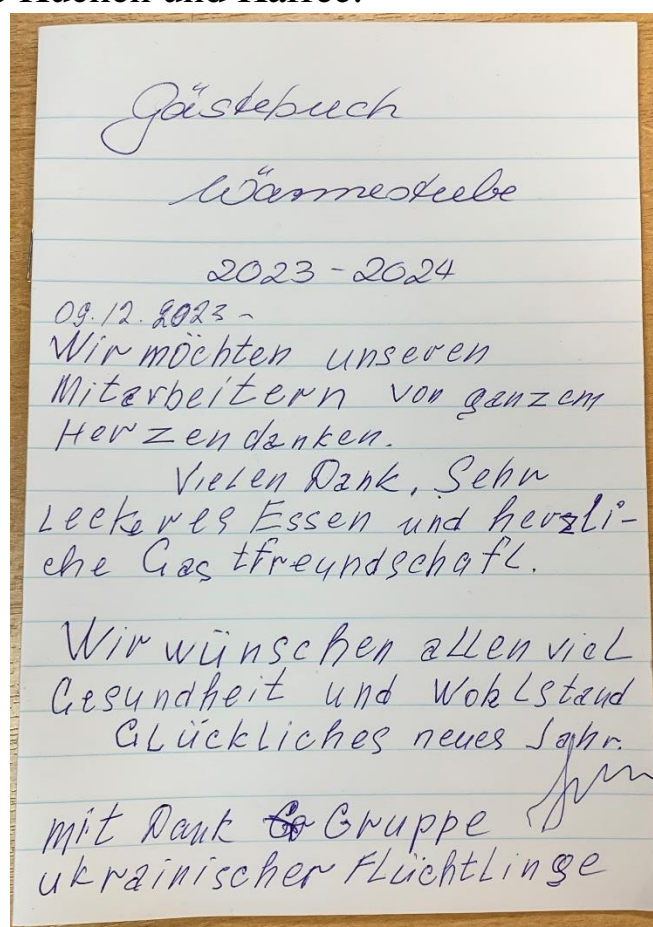 Kuchen und Kaffee.
Gästebuch
Wärmestube
2023-2024
09.12.2023-
Wir möchten unseren
Mitarbeitern von ganzem
Herzen danken.
Vielen Dank, Sehr
Leckeres Essen und herzli-
che Gastfreundschaft.
Wir wünschen allen viel
Gesundheit und Wohlstand
Glückliches neues Jahr.
mit Dank Gruppe
ukrainischer Flüchtlinge